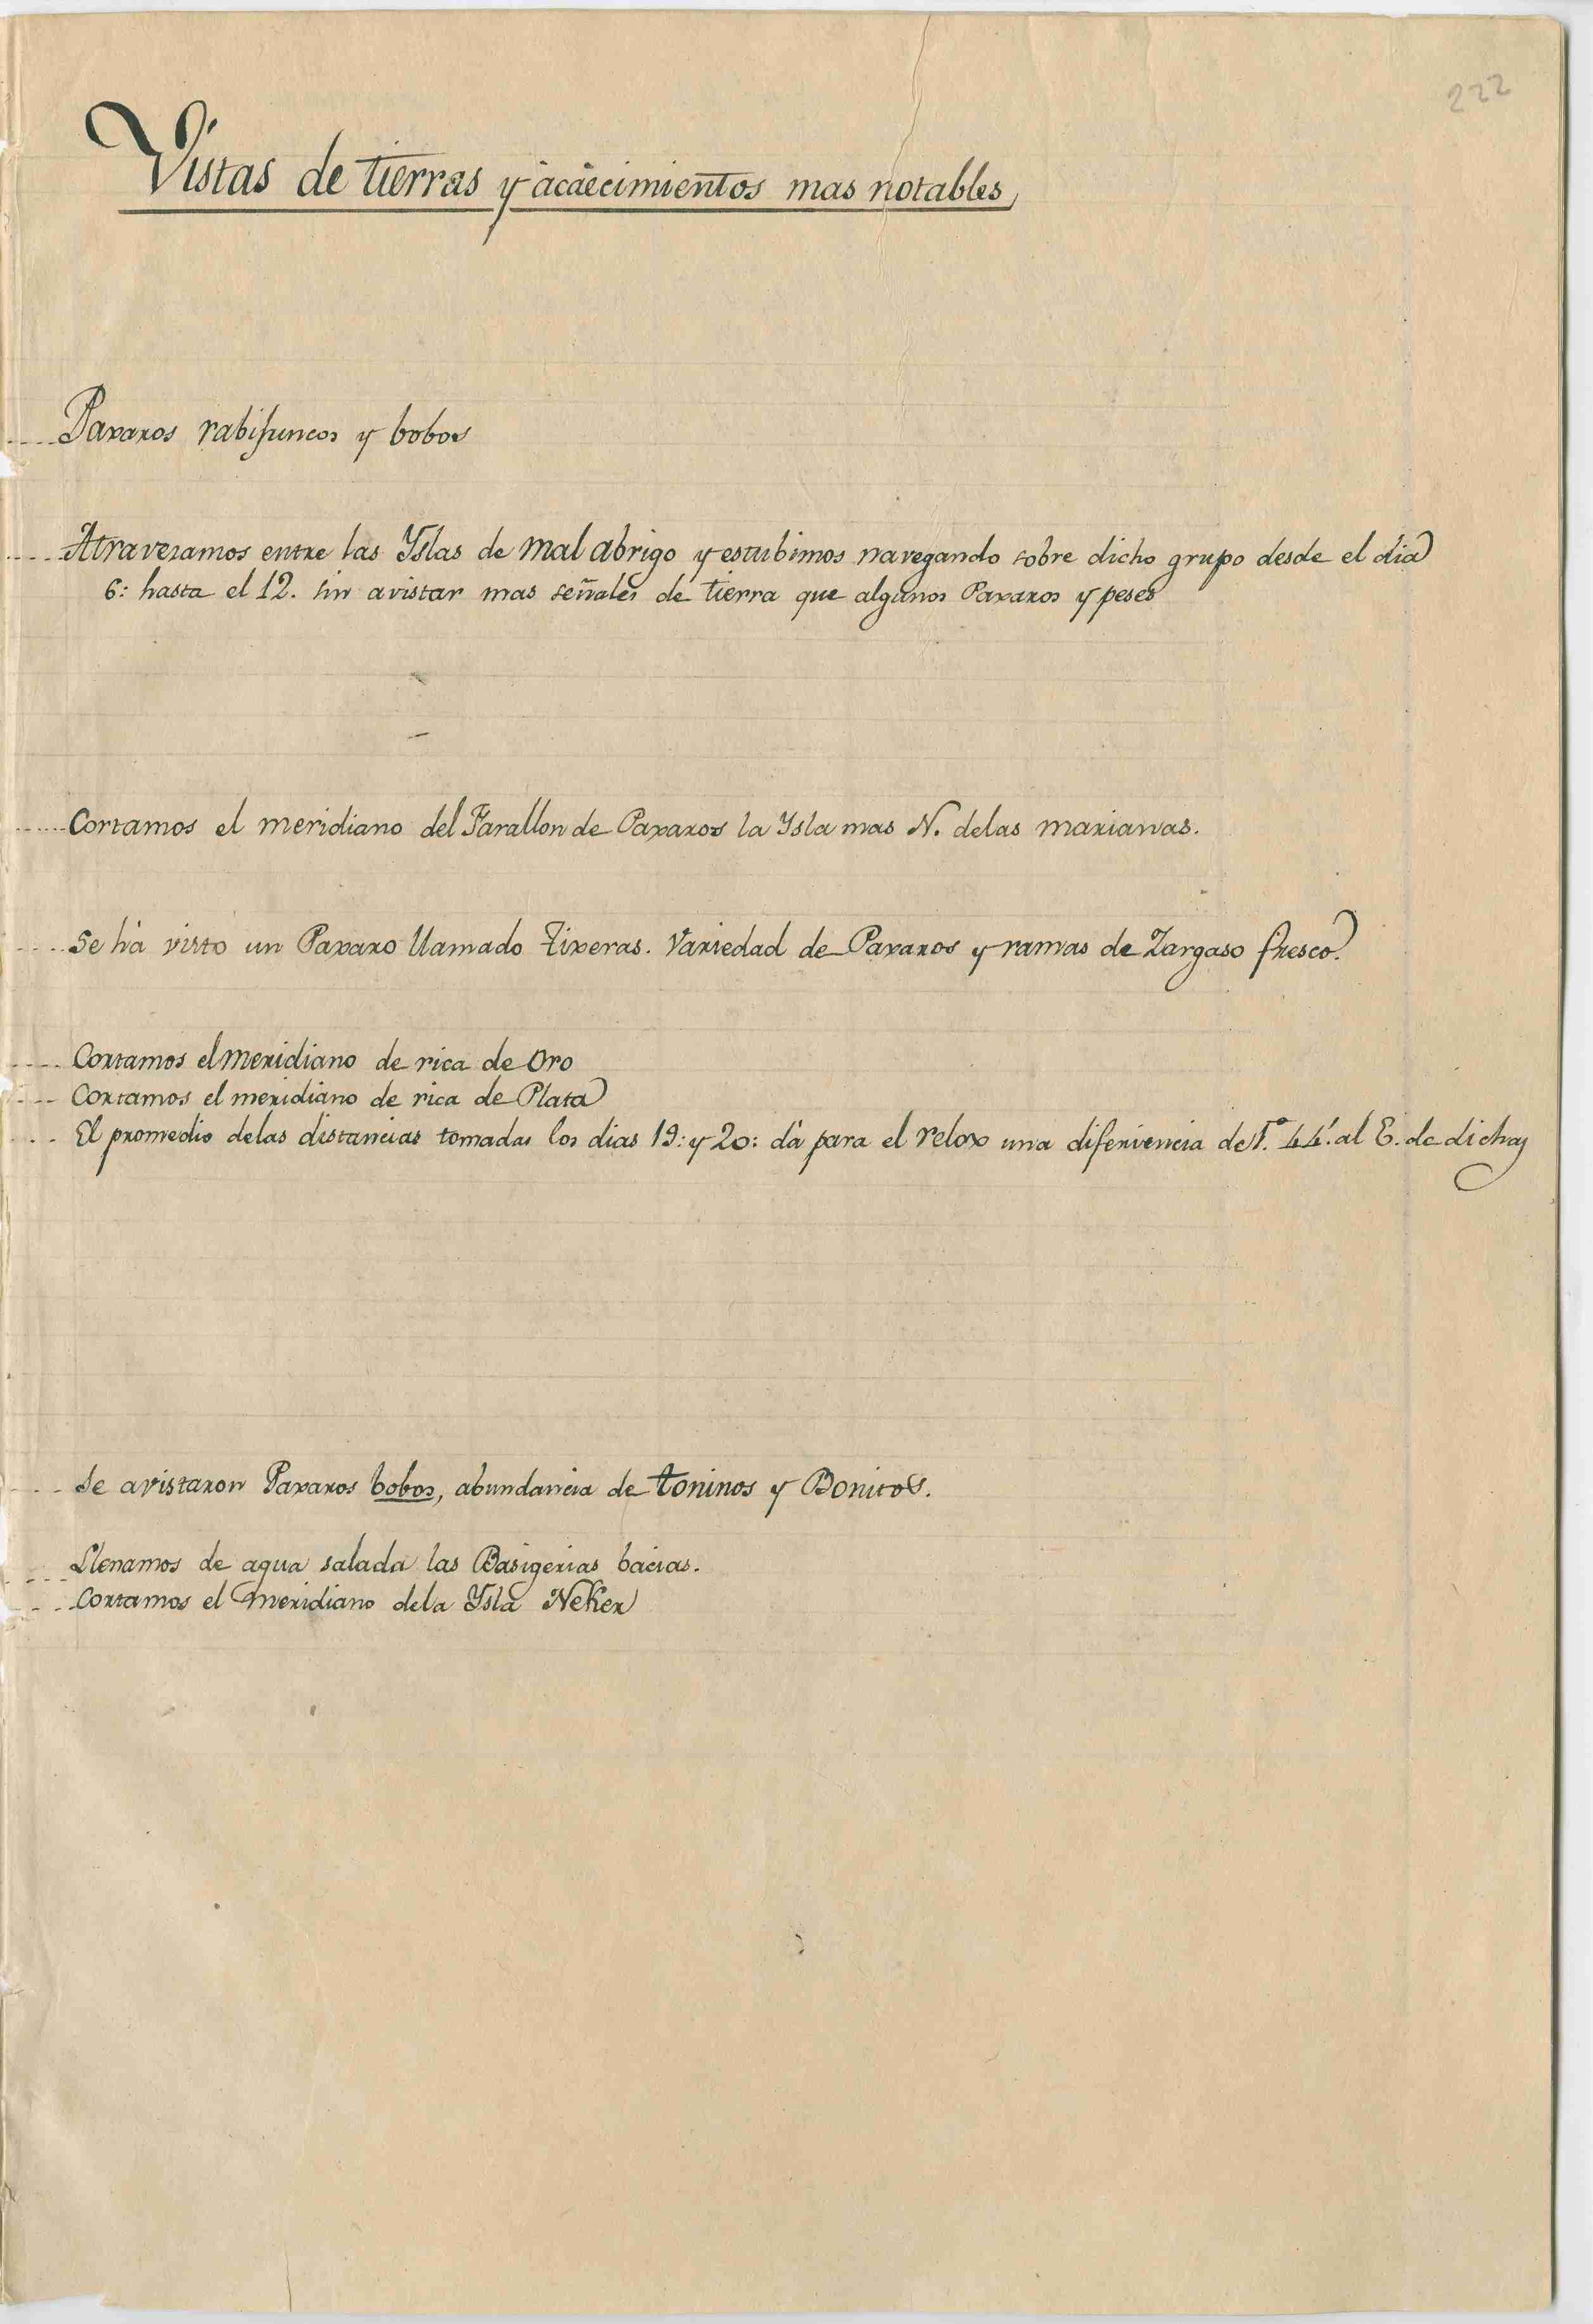 222
Vistas de tierras y àcàecimientos mas notables
Paxaros rabijuncos y bobos
Atravezamos entre las Yslas de mal abrigo y estubimos navegando sobre dicho grupo desde el dia
6: hasta el 12. sin avistar mas señales de tierra que algunos Paxaros y peses
Cortamos el meridiano del Farallon de Paxaros la Ysla mas N. delas marianas.
Se há visto un Paxaro llamado tixeras. Variedad de Paxaros y ramas de Zargaso fresco.
Cortamos el meridiano de rica de Oro
Cortamos el meridiano de rica de Plata
El promedio delas distancias tomadas los dias 19: y 20: dá para el relox una difeniencia de 1.º 44'. al E. de dichas
Se avistaron Paxaros bobos, abundancia de toninos y Bonitos.
Llenamos de agua salada las Basigerias bacias.
Cortamos el meridiano dela Ysla Neker